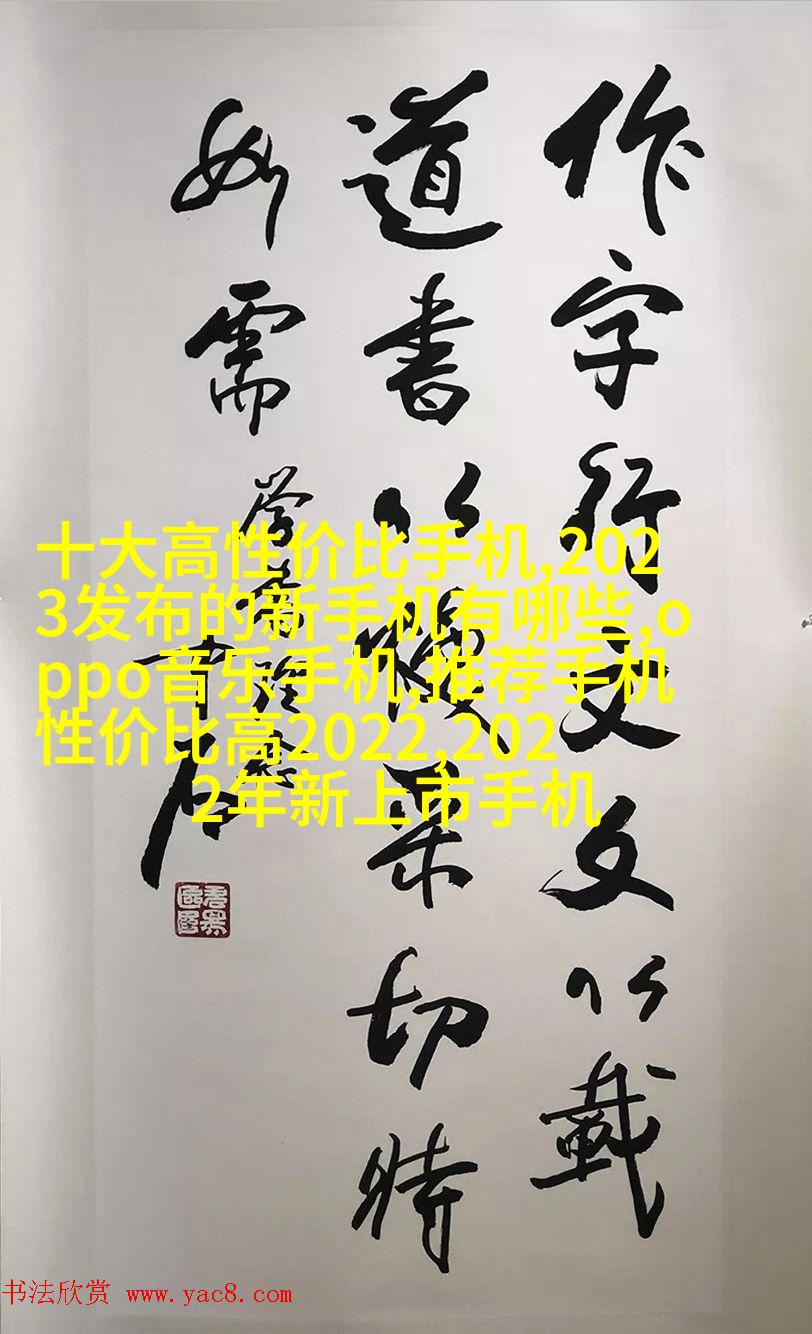 作字行文文以載
道書以焕采切時
如需
中石
十大高性价比手机,202
3发布的新手机有哪些,o
ppo音乐手机,推荐手机
性价比高2022,202
2年新上市手机
书法欣赏 www.yac8.com